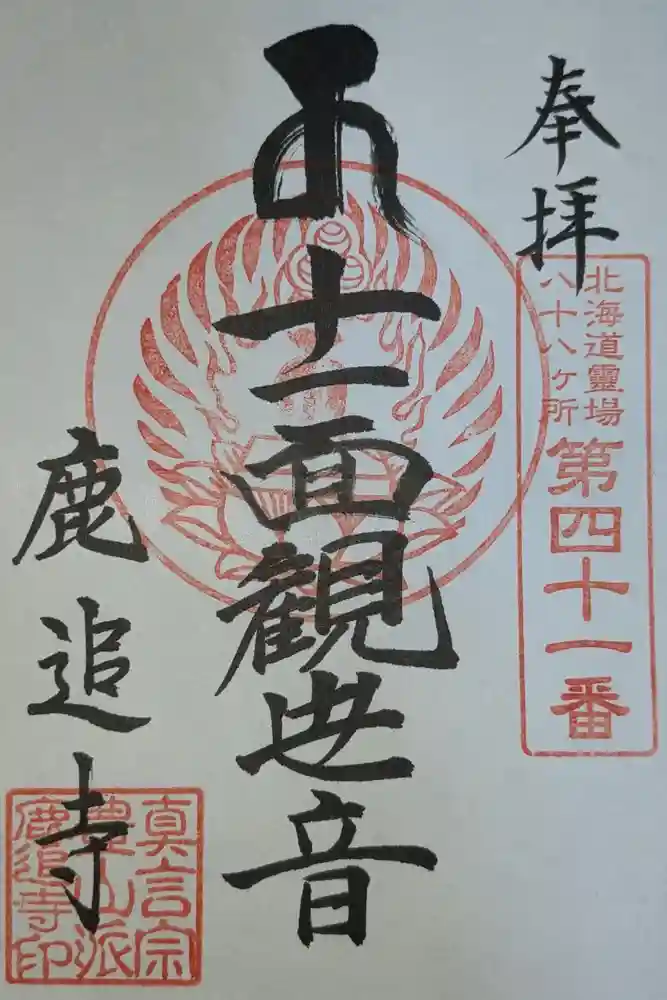 奉拝
北海道霊場
八十八ヶ所
第四十一番
十一面観世音
鹿追寺
真言宗
豊山派
鹿追寺印